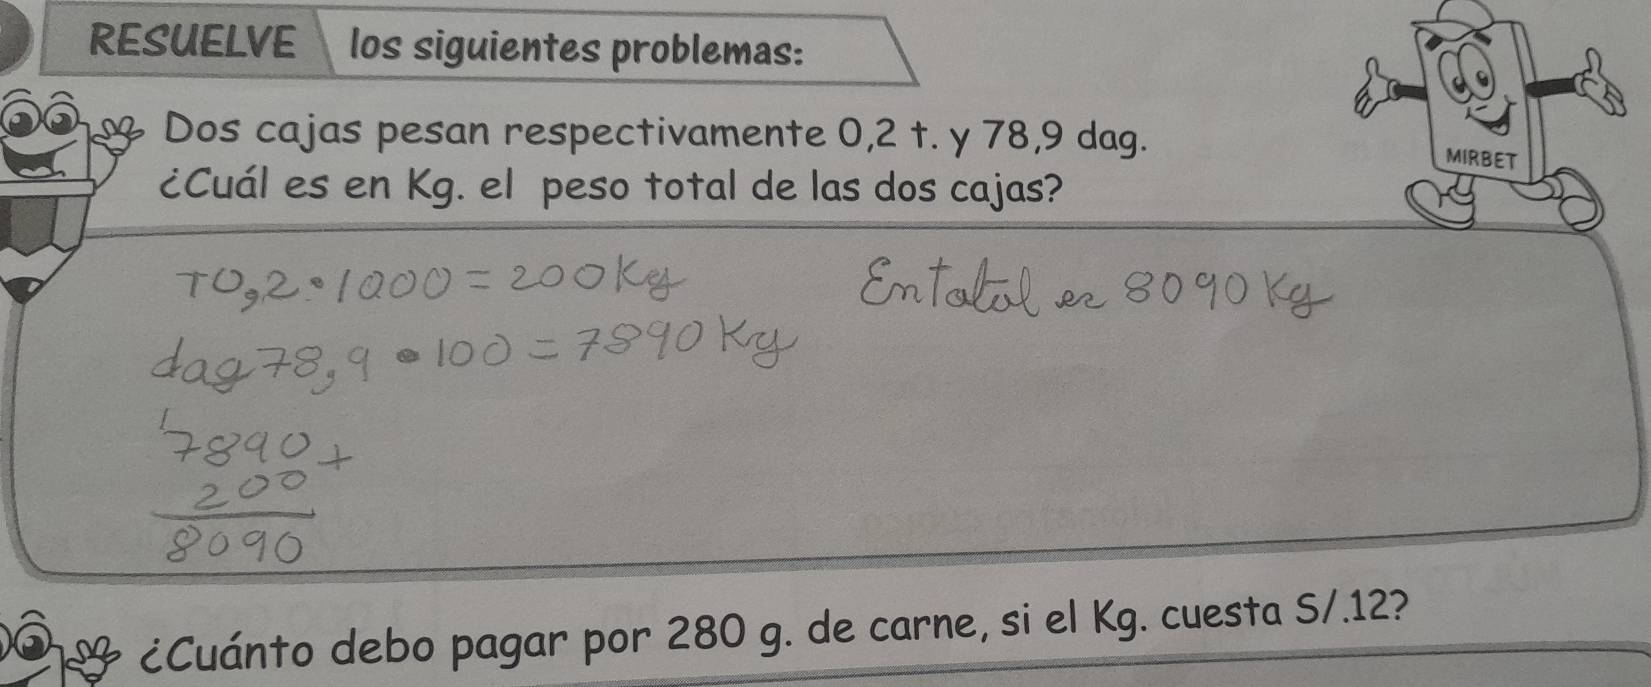 RESUELVE los siguientes problemas:
Dos cajas pesan respectivamente 0,2 t. y 78,9 dag.
¿Cuál es en Kg. el peso total de las dos cajas?
MIRBET
T0,2•1000=200Kg
En Total es 8090 Kg
dag78,9•100=7890Kg
1
7890+
200
8090
¿Cuánto debo pagar por 280 g. de carne, si el Kg. cuesta S/.12?